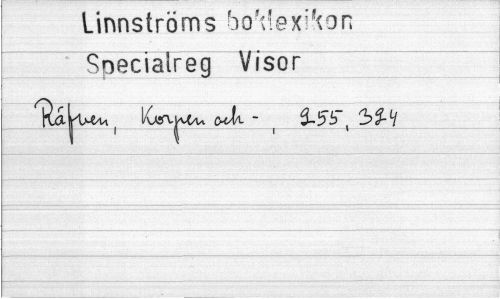 Linnströms boklexikon
Specialreg Visor
Räfven, Korpen och -, 255, 324